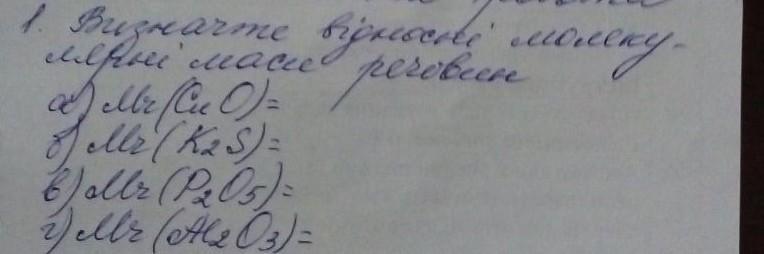 1. Визначте відносні молеку-
лярні маси речовин
а) Mr(CuO)=
б) Mr(K2S)=
в) Mr(P2O5)=
г) Mr(Al2O3)=